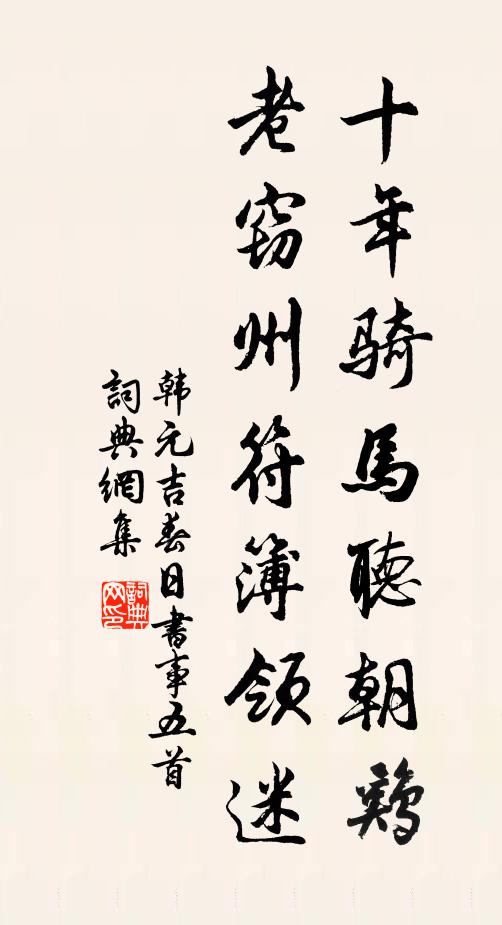 十年騎馬聽朝鷄
老窃州符簿領迷
韩元吉春日書事五首
詞典網集
詞典网印